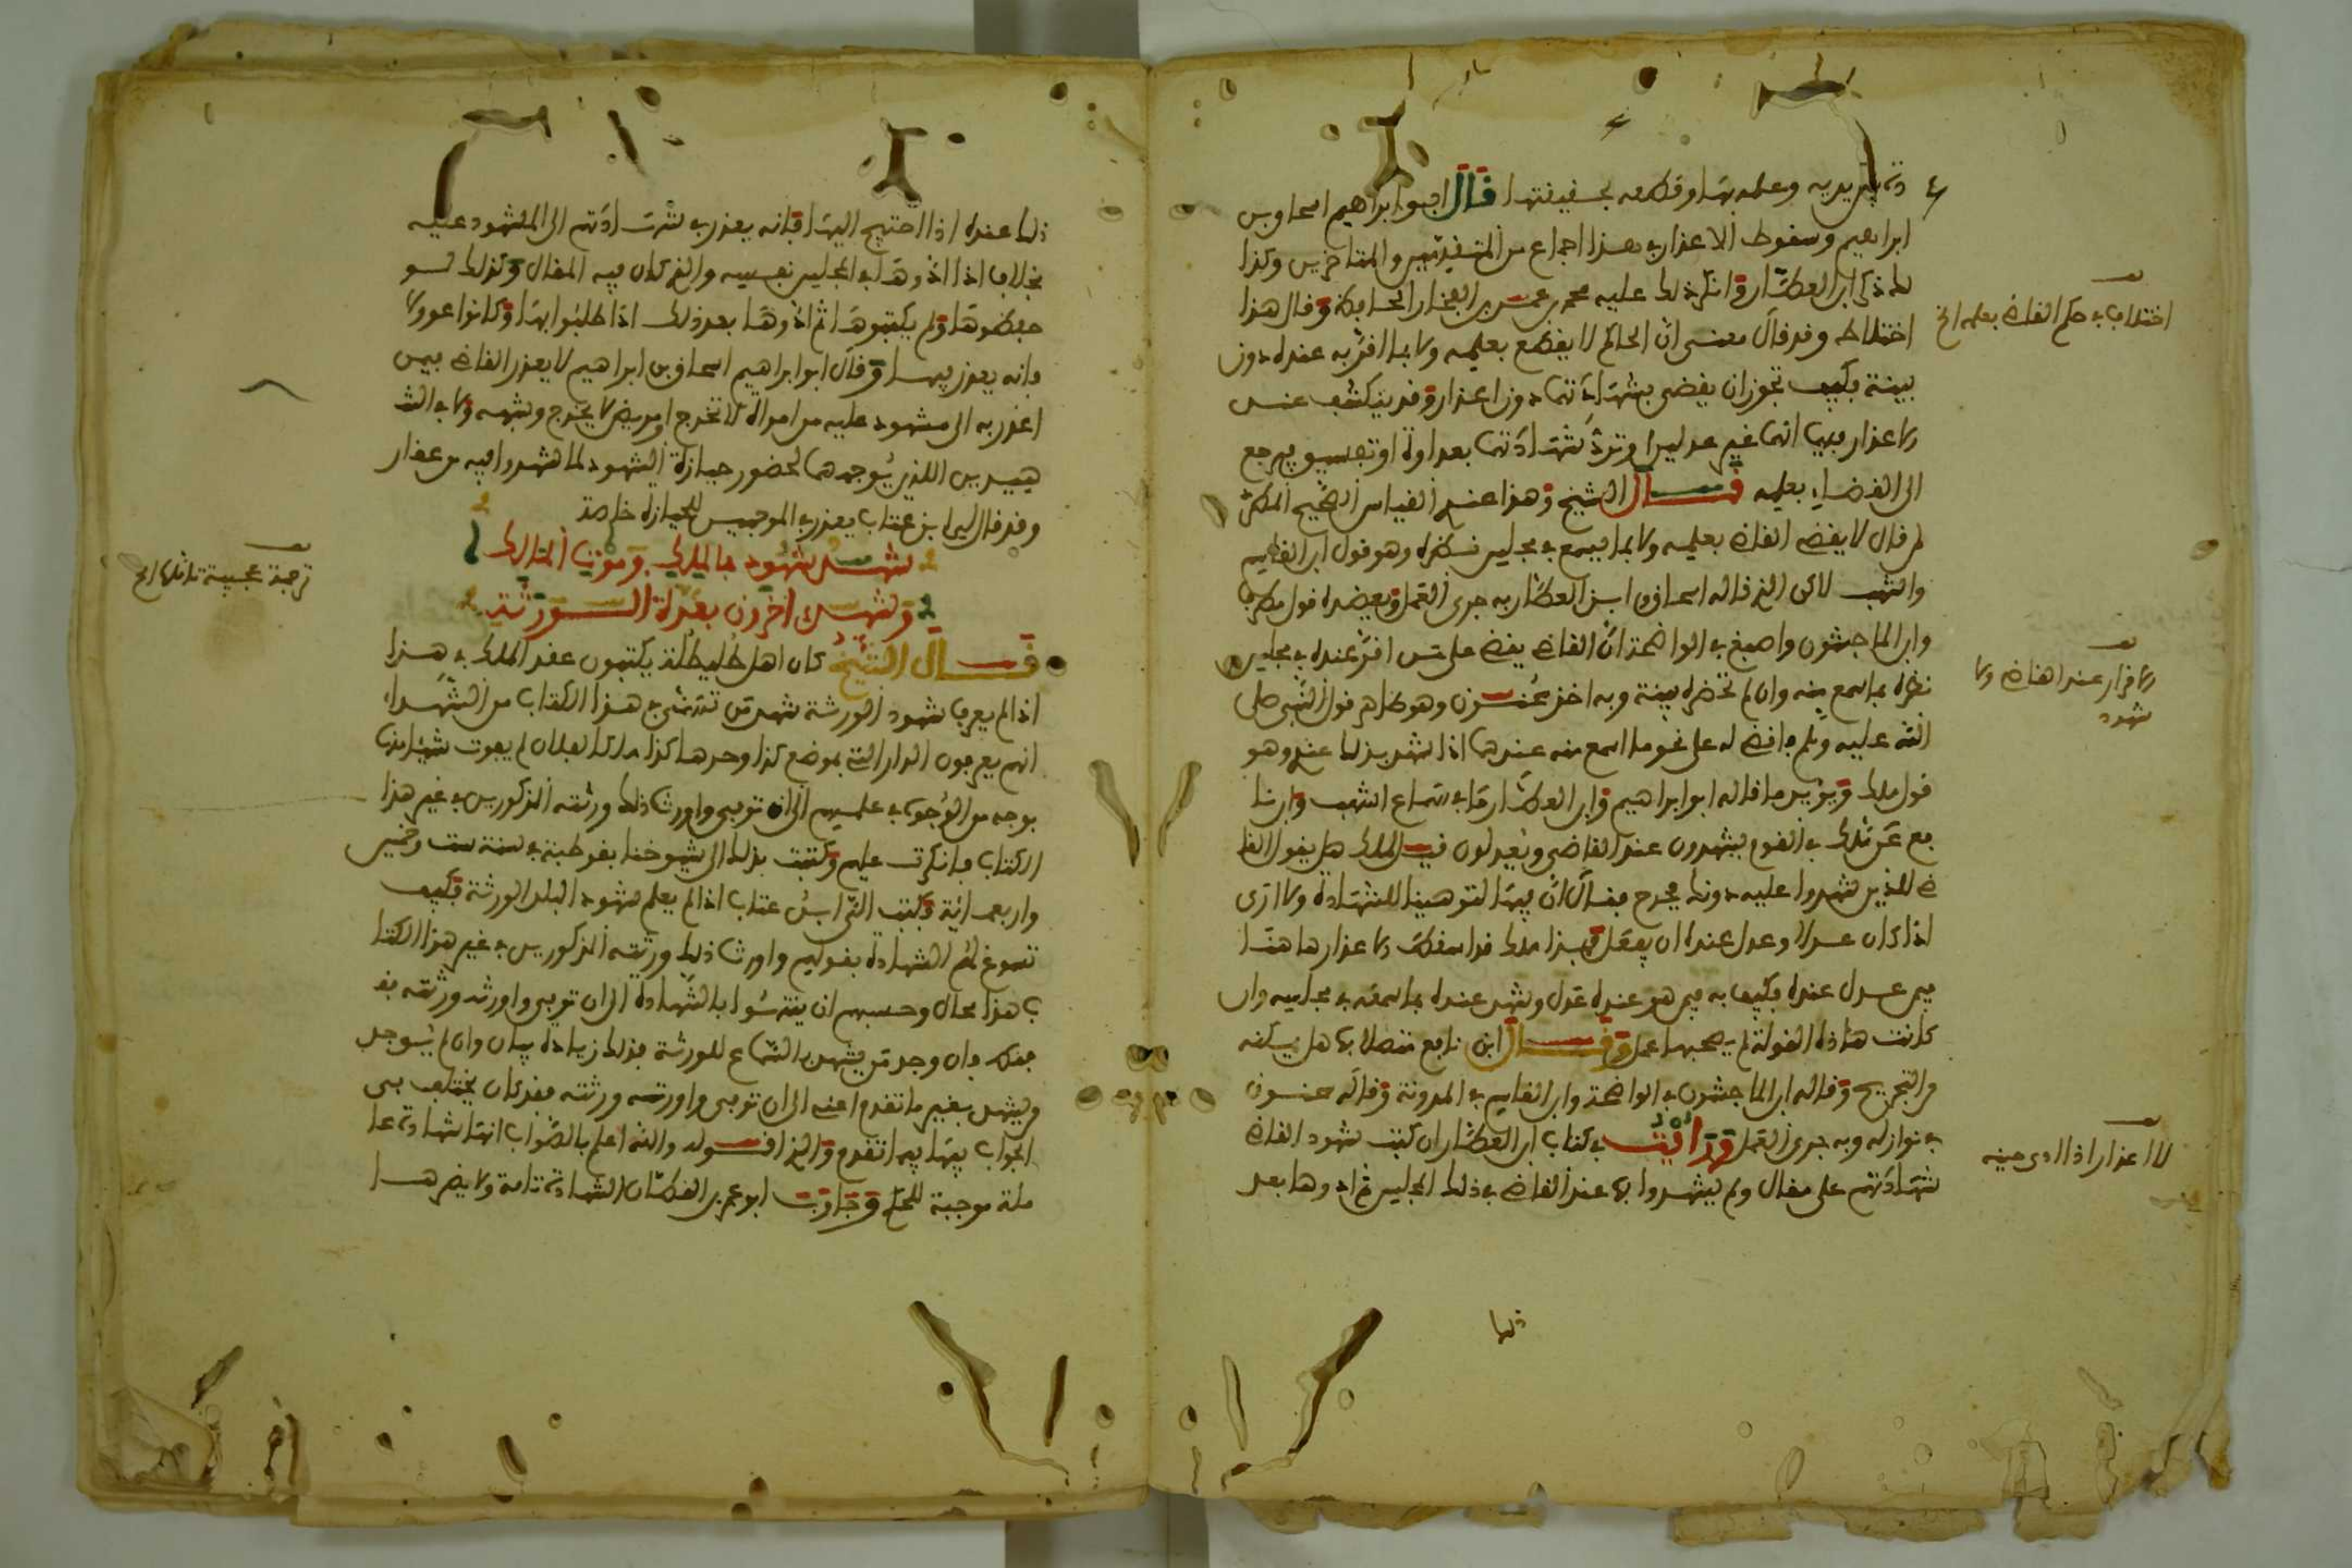 دته بين يديه وعلمه بها وقطعه بحقيقتها قال ابو ابراهيم اسحاق بن
ابراهيم وسقوط الاعذار في هذا اجماع من المتقدمين والمتاخرين وكذا
لك ذكر ابن العطار وانكر ذلك عليه محمد بن عمر بن الفخار الحافظ وقال هذا
اختلاط وقد قال معنى ان الحاكم لا يقطع بعلمه ولا بما اقر به عنده دون
بينة فكيف تجوز ان يقضى بشهادتهما دون اعذار وقد ينكشف عند
الاعذار فيهما انهما غير عدلين او ترد شهادتهما بعداوة او تفسيق فيرجع
الى القضاء بعلمه قال الشيخ وهذا عندي القياس الصحيح المطرد
لمن قال لا يقضي القاضي بعلمه ولا بما يسمع في مجلس نظره وهو قول ابن القاسم
واشهب لاكن الذي قاله اسحاق وابن العطار به جرى العمل ويعضده قول مطرف
وابن الماجشون واصبغ في الواضحة ان القاضي يقضي على من اقر عنده في مجلس
نظره بما سمع منه وان لم تحضره بينة وبه اخذ سحنون وهو ظاهر قول النبي صلى
الله عليه وسلم فاقضي له على نحو ما اسمع منه عندهما اذا شهد بذلك عنده وهو
قول مالك ويؤيد ما قاله ابو ابراهيم وابن العطار ما في سماع اشهب وابن نا
فع عن مالك في القوم يشهدون عند القاضي ويعدلون قيل لمالك هل يقول القا
ضي للذين شهدوا عليه دونك فجرح فقال ان فيها لتوهينا للشهادة ولا ارى
اذا كان عدلا او عدل عنده ان يفعل فهذا مالك قد اسقط الاعذار هاهنا
فيمن عدل عنده فكيف به فيمن هو عنده عدل وشهد عنده بما سمعه في مجلسه وان
كانت هاذه القولة لم يصحبها عمل وقال ابن نافع متصلا بها هل يمكنه
من التجريح وقاله ابن الماجشون في الواضحة وابن القاسم في المدونة وقاله سحنون
في نوازله وبه جرى العمل ورايت في كتاب ابن العطار ان كتب شهود القاضي
شهادتهم على مقال ولم يشهدوا بها عند القاضي في ذلك المجلس ثم ادوها بعد
ذلك
اختلاف في حكم القاضي بعلمه الخ
الاقرار عند القاضي ولا
شهود
لا اعذار اذا ادى من
ذلك عنده اذا احتيج اليها فانه يعذر في شهادتهم الى المشهود عليه
بخلاف اذا ادوها في المجلس نفسه والذي كان فيه المقال وكذلك لو
حفظوها ولم يكتبوها ثم ادوها بعد ذلك اذا طلبوا بها وكانوا عدولا
فانه يعذر فيها وقال ابو ابراهيم اسحاق بن ابراهيم لا يعذر القاضي فيمن
اعذر به الى مشهود عليه من امراة لا تخرج او مريض لا يخرج وشبهه ولا في الشا
هيدين اللذين يوجههما لحضور حيازة الشهود لما شهدوا فيه من عقار
وقد قال لي ابن عتاب يعذر في الموجهين للحيازة خاصة
شهد شهود بالملك وموت المالك
وشهد اخرون بعدة الورثة
قال الشيخ كان اهل طليطلة يكتبون عقد الملك في هذا
اذا لم يعرف شهود الورثة شهد من تسمى في هذا الكتاب من الشهداء
انهم يعرفون الدار التي بموضع كذا وحدها كذا ملكا لفلان لم يفوت شيئا منها
بوجه من الوجوه في علمهم الى ان توفي واورث ذلك ورثته المذكورين في غير هذا
الكتاب فانكرت عليهم وكتبت بذلك الى شيوخنا بقرطبة في سنة ست وخمسين
واربع مائة وكتب الي ابن عتاب اذا لم يعلم شهود البلد الورثة فكيف
تسوغ لهم الشهادة بقولهم واورث ذلك ورثته المذكورين في غير هذا الكتا
ب هذا محال وحسبهم ان يشهدوا بالشهادة الى ان توفي واورثه ورثته فقـ
فقط فان وجد من يشهد بالسماع للورثة فذلك زيادة بيان وان لم يوجد
من يشهد بغير ما تقدم اعني الى ان توفي واورثه ورثته فقد كان يختلف في
الجواب فيها فيما تقدم والذي اقوله والله اعلم بالصواب انها شهادة عا
ملة موجبة للحكم وجاوب ابو عمر بن القطان الشهادة تامة ولا يضر هـا
ترجمة عجيبة تاملها الخ